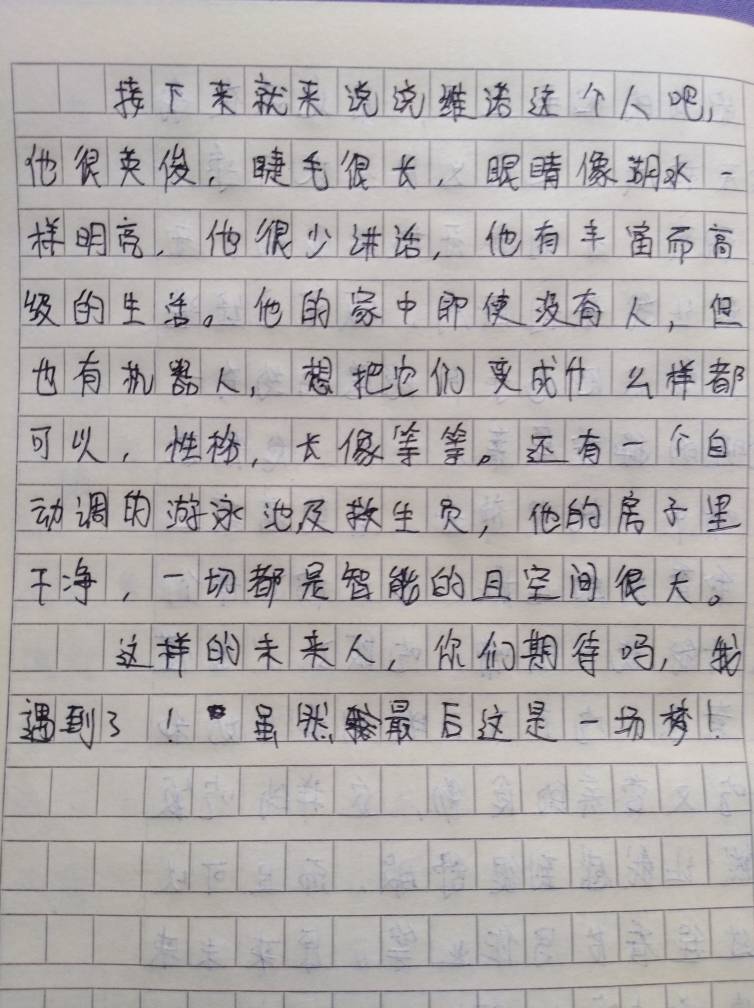 接下来就来说说维诺这个人吧，
他很英俊，睫毛很长，眼睛像湖水一
样明亮，他很少讲话，他有丰富而高
级的生活。他的家中即使没有人，但
也有机器人，想把它们变成什么样都
可以，性格，长像等等。还有一个自
动调的游泳池及救生员，他的房子里
干净，一切都是智能的且空间很大。
这样的未来人，你们期待吗，我
遇到了！虽然最后这是一场梦！